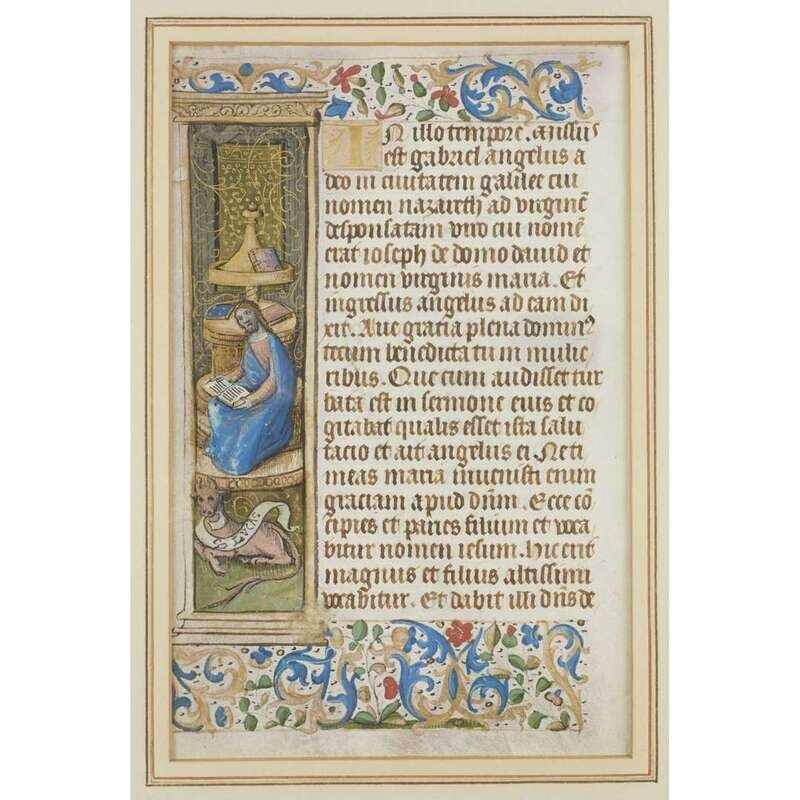 IN illo tempore. Missus
est gabriel angelus a
deo in ciuitatem galilee cui
nomen nazareth ad virginē
desponsatam viro cui nomē
erat ioseph de domo dauid et
nomen virginis maria. Et
ingressus angelus ad eam di
xit. Aue gracia plena domin⁹
tecum benedicta tu in mulie
ribus. Que cum audisset tur
bata est in sermone eius et co
gitabat qualis esset ista salu
tacio et ait angelus ei Neti
meas maria inuenisti enim
graciam apud dn̄m. Ecce cō
cipies et paries filium et voca
bitur nomen iesum. hic erit
magnus et filius altissimi
vocabitur. Et dabit illi dn̄s de